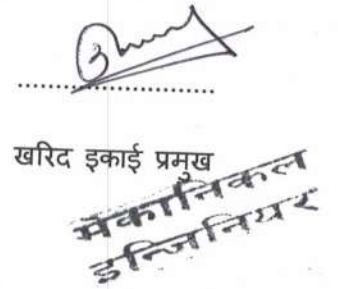 ....................................
खरिद इकाई प्रमुख
मेकानिकल
इन्जिनियर